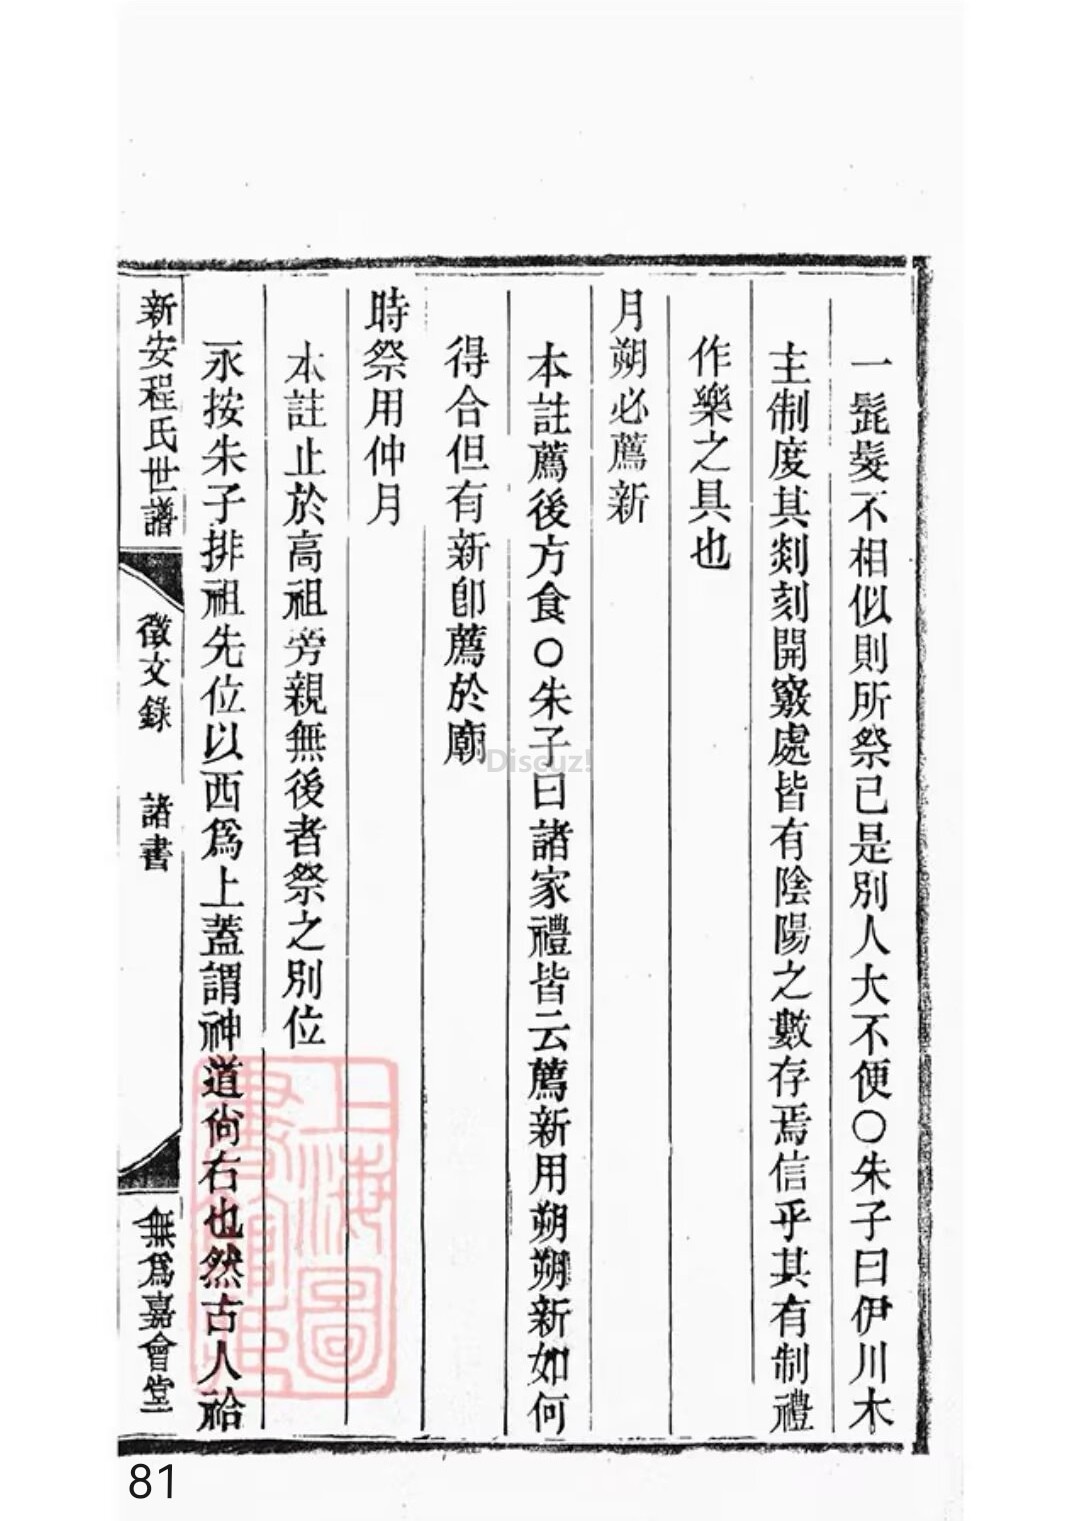 一髭髮不相似則所祭已是別人大不便○朱子曰伊川木
主制度其剡刻開竅處皆有陰陽之數存焉信乎其有制禮
作樂之具也
月朔必薦新
本註薦後方食○朱子曰諸家禮皆云薦新用朔朔新如何
得合但有新卽薦於廟
時祭用仲月
本註止於高祖旁親無後者祭之別位
永按朱子排祖先位以西爲上蓋謂神道尙右也然古人祫
新安程氏世譜
徵文錄 諸書
無爲嘉會堂
上海圖
書館藏
Discuz!
81